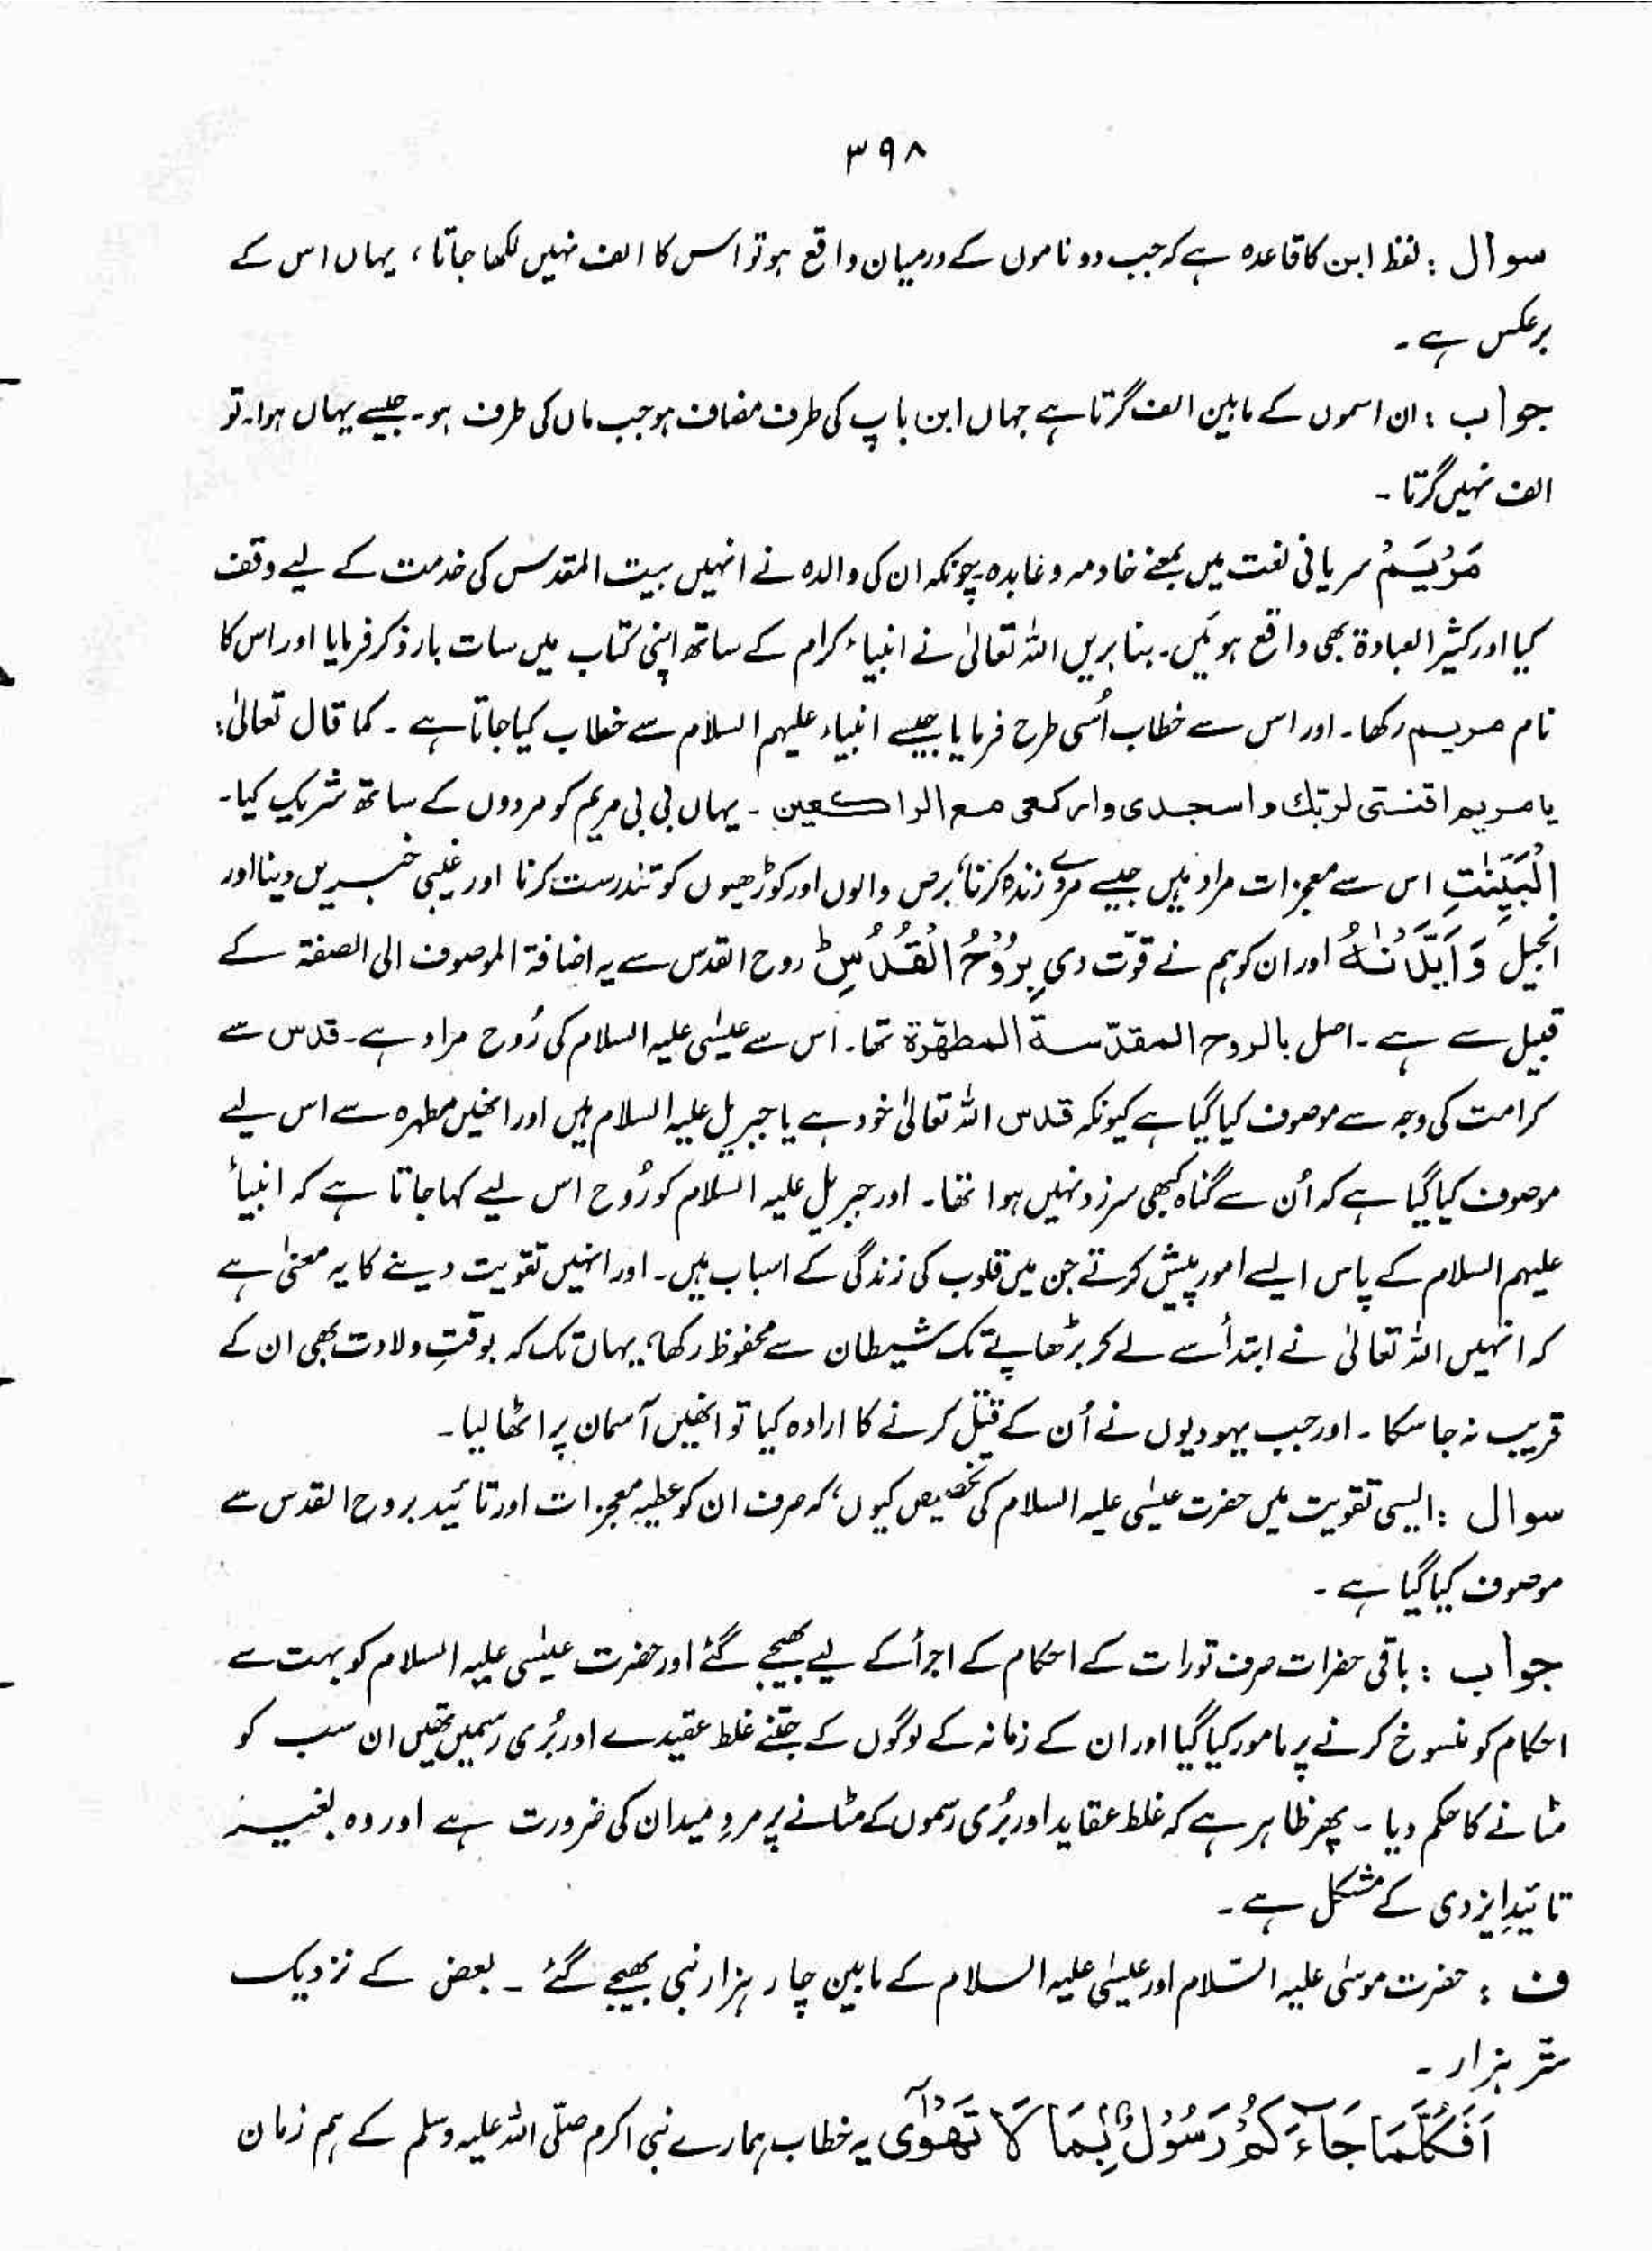 ۳۹۸
سوال : لفظ ابن کا قاعدہ ہے کہ جب دو ناموں کے درمیان واقع ہو تو اس کا الف نہیں لکھا جاتا ، یہاں اس کے
برعکس ہے ۔
جواب : ان اسموں کے مابین الف گرتا ہے جہاں ابن باپ کی طرف مضاف ہو جب ماں کی طرف ہو ۔ جیسے یہاں ہوا ۔ تو
الف نہیں گرتا ۔
مَرْیَمُ سریانی لغت میں بمعنے خادمہ و عابدہ ۔ چونکہ ان کی والدہ نے انہیں بیت المقدس کی خدمت کے لیے وقف
کیا اور کثیر العبادۃ بھی واقع ہوئیں ۔ بنا بریں اللہ تعالیٰ نے انبیاء کرام کے ساتھ اپنی کتاب میں سات بار ذکر فرمایا اور اس کا
نام مریم رکھا ۔ اور اس سے خطاب اُسی طرح فرمایا جیسے انبیاء علیہم السلام سے خطاب کیا جاتا ہے ۔ کما قال تعالیٰ :
یامریم اقنتی لربّك و اسجدی وارکعی مع الراکعین ۔ یہاں بی بی مریم کو مردوں کے ساتھ شریک کیا ۔
الْبَیِّنٰتِ اس سے معجزات مراد ہیں جیسے مردے زندہ کرنا ، برص والوں اور کوڑھیوں کو تندرست کرنا اور غیبی خبریں دینا اور
انجیل وَ اَیَّدْنٰهُ اور ان کو ہم نے قوّت دی بِرُوْحِ الْقُدُسِ ط روح القدس سے یہ اضافۃ الموصوف الی الصفۃ کے
قبیل سے ہے ۔ اصل بالروح المقدّسۃ المطھّرۃ تھا ۔ اس سے عیسٰی علیہ السلام کی رُوح مراد ہے ۔ قدس سے
کرامت کی وجہ سے موصوف کیا گیا ہے کیونکہ قدس اللہ تعالیٰ خود ہے یا جبریل علیہ السلام ہیں اور انھیں مطہرہ سے اس لیے
موصوف کیا گیا ہے کہ اُن سے گناہ کبھی سرزد نہیں ہوا تھا ۔ اور جبریل علیہ السلام کو رُوح اس لیے کہا جاتا ہے کہ انبیاؑ
علیہم السلام کے پاس ایسے امور پیش کرتے جن میں قلوب کی زندگی کے اسباب ہیں ۔ اور انہیں تقویت دینے کا یہ معنیٰ ہے
کہ انہیں اللہ تعالیٰ نے ابتدأ سے لے کر بڑھاپے تک شیطان سے محفوظ رکھا ، یہاں تک کہ بوقتِ ولادت بھی ان کے
قریب نہ جا سکا ۔ اور جب یہودیوں نے اُن کے قتل کرنے کا ارادہ کیا تو انھیں آسمان پر اٹھا لیا ۔
سوال : ایسی تقویت میں حضرت عیسٰی علیہ السلام کی تخصیص کیوں ، کہ صرف ان کو عطیہ معجزات اور تائید بروح القدس سے
موصوف کیا گیا ہے ۔
جواب : باقی حضرات صرف تورات کے احکام کے اجرأ کے لیے بھیجے گئے اور حضرت عیسٰی علیہ السلام کو بہت سے
احکام کو منسوخ کرنے پر مامور کیا گیا اور ان کے زمانہ کے لوگوں کے جتنے غلط عقیدے اور بُری رسمیں تھیں ان سب کو
مٹانے کا حکم دیا ۔ پھر ظاہر ہے کہ غلط عقاید اور بُری رسموں کے مٹانے پر مردِ میدان کی ضرورت ہے اور وہ بغیر
تائیدِ ایزدی کے مشکل ہے ۔
ف : حضرت موسٰی علیہ السّلام اور عیسٰی علیہ السلام کے مابین چار ہزار نبی بھیجے گئے ۔ بعض کے نزدیک
ستّر ہزار ۔
اَفَکُلَّمَا جَآءَکُمْ رَسُوْلٌۢ بِمَا لَا تَهْوٰٓی یہ خطاب ہمارے نبی اکرم صلّی اللہ علیہ وسلم کے ہم زمان